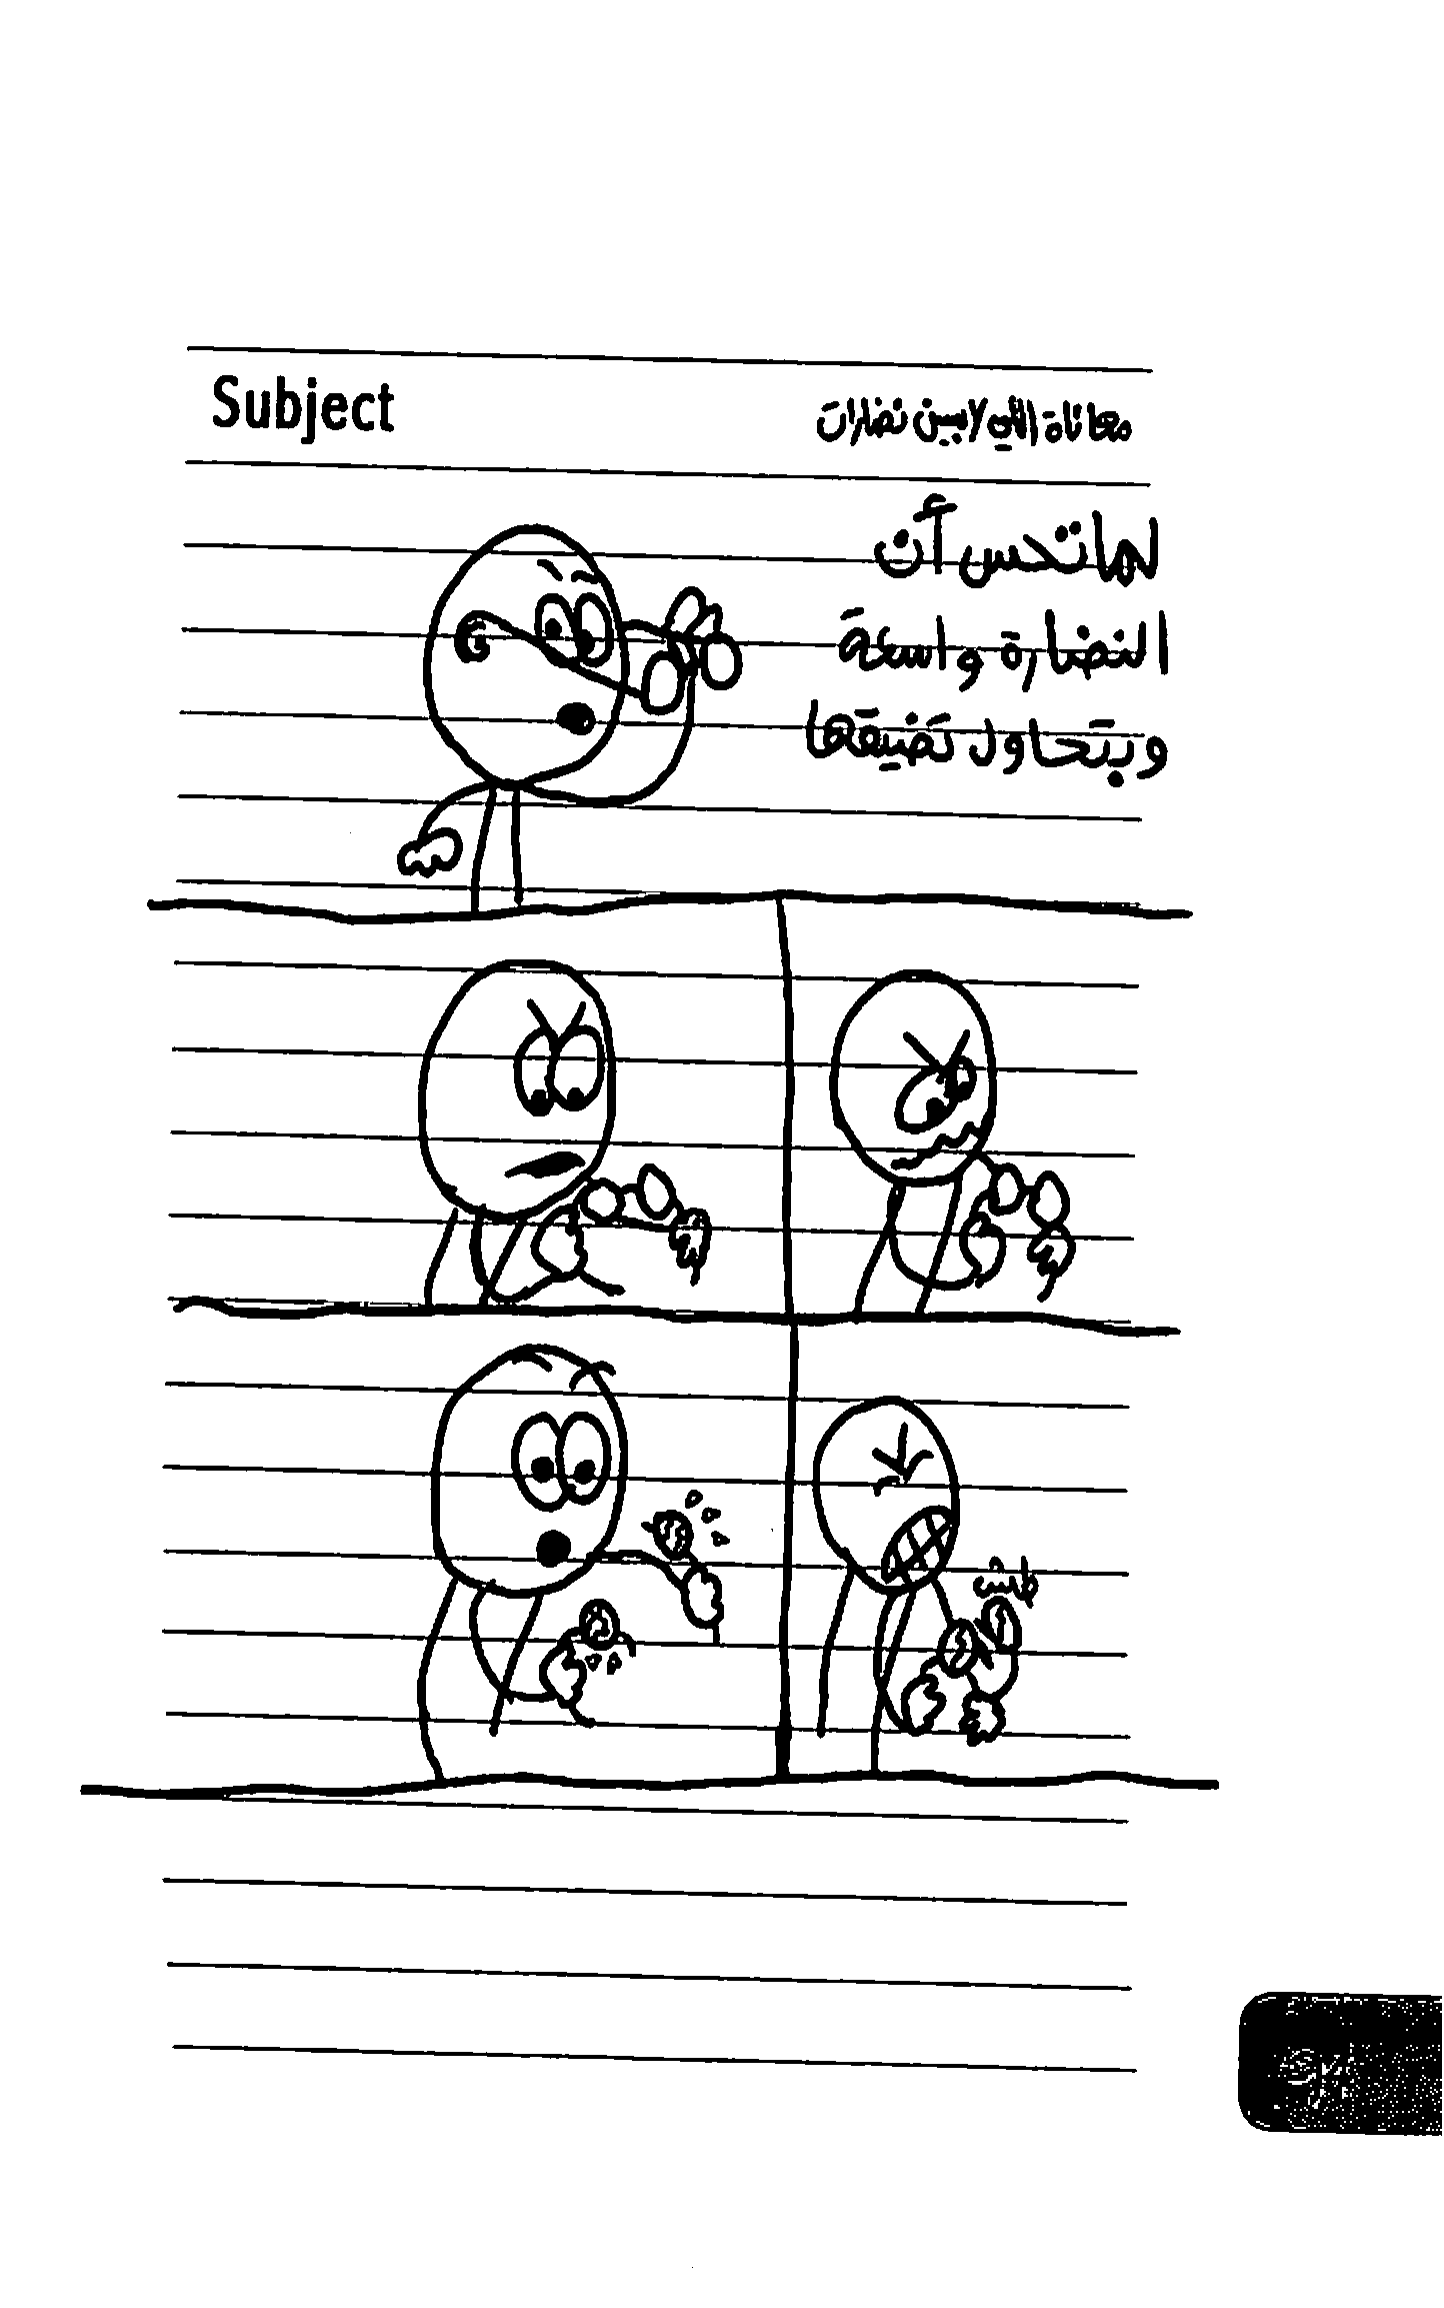 Subject
معاناة الي لابسين نضارات
لما تحس أن
النضارة واسعة
وبتحاول تضيقها
طش